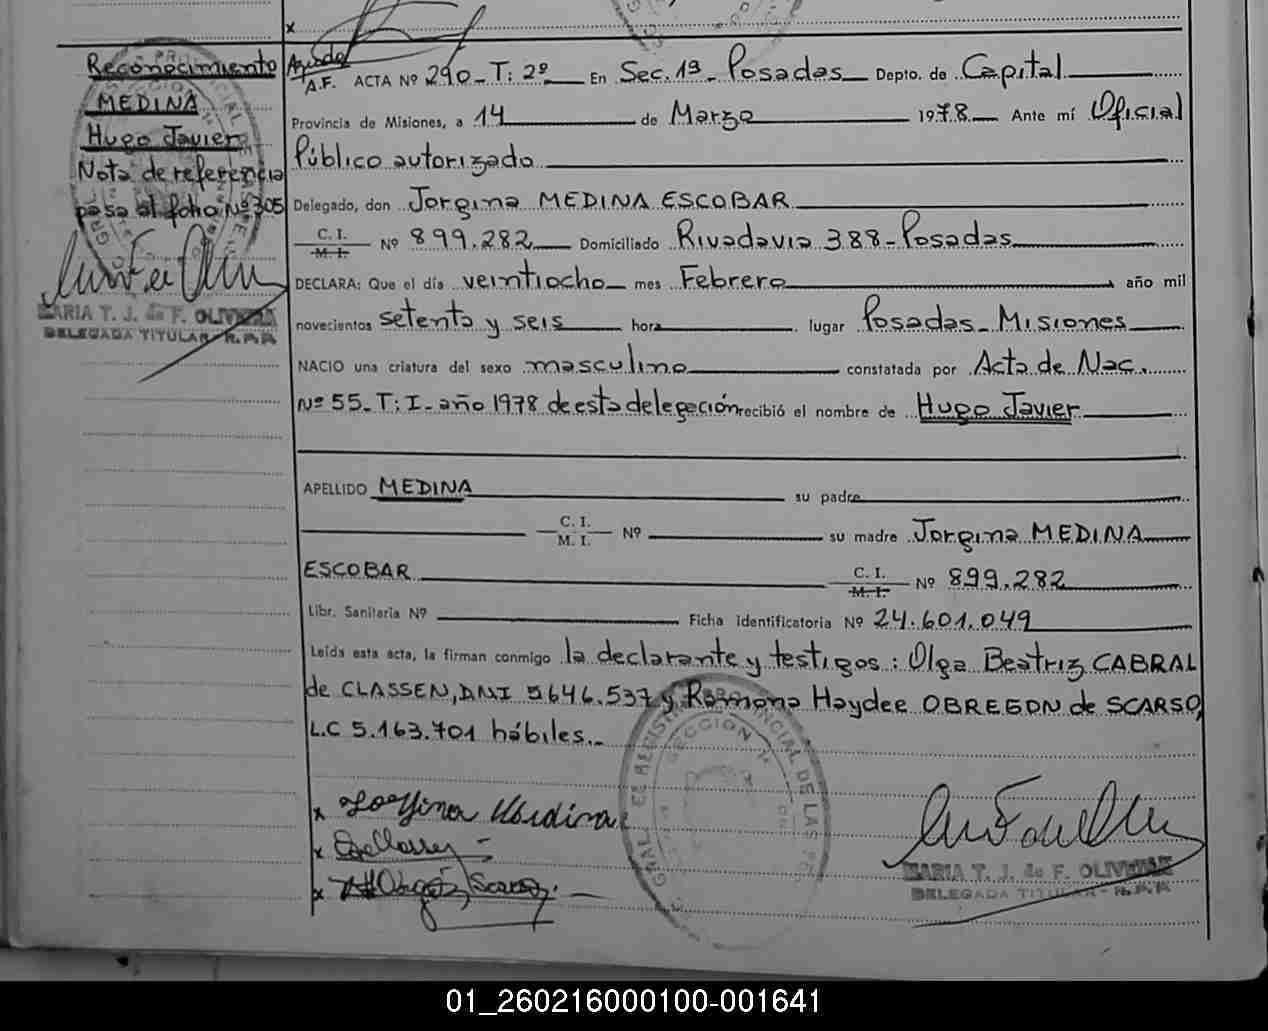 Reconocimiento
MEDINA
Hugo Javier
Nota de referencia
pasa al folio Nº 305
MARIA T. J. de F. OLIVEIRA
DELEGADA TITULAR - R.P.P.
A.F. ACTA Nº 290 - T: 2º En Sec. 1ª - Posadas Depto. de Capital
Provincia de Misiones, a 14 de Marzo 1978. Ante mí Oficial
Público autorizado
Delegado, don Jorgina MEDINA ESCOBAR
C. I. M. I. Nº 899.282 Domiciliado Rivadavia 388 - Posadas
DECLARA: Que el día veintiocho mes Febrero año mil
novecientos setenta y seis hora lugar Posadas - Misiones
NACIO una criatura del sexo masculino constatada por Acta de Nac.
Nº 55 - T: I - año 1978 de esta delegación recibió el nombre de Hugo Javier
APELLIDO MEDINA su padre
C. I. M. I. Nº su madre Jorgina MEDINA
ESCOBAR C. I. M. I. Nº 899.282
Libr. Sanitaria Nº Ficha identificatoria Nº 24.601.049
Leída esta acta, la firman conmigo la declarante y testigos: Olga Beatriz CABRAL
de CLASSEN, DNI 5646.537 y Ramona Haydee OBREGON de SCARSO,
L.C 5.163.701 hábiles.
x Jorgina Medina
x
x
MARIA T. J. de F. OLIVEIRA
DELEGADA TITULAR - R.P.P.
01_260216000100-001641